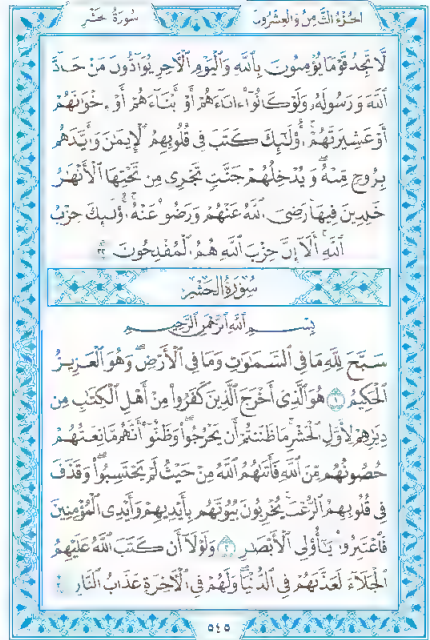 الجُزْءُ الثَّامِنُ وَالعِشْرُونَ
سُورَةُ حَشْر
لَّا تَجِدُ قَوْمًا يُؤْمِنُونَ بِاللَّهِ وَالْيَوْمِ الْآخِرِ يُوَادُّونَ مَنْ حَادَّ
اللَّهَ وَرَسُولَهُ وَلَوْ كَانُوا ءَابَاءَهُمْ أَوْ أَبْنَاءَهُمْ أَوْ إِخْوَانَهُمْ
أَوْ عَشِيرَتَهُمْ أُولَٰئِكَ كَتَبَ فِي قُلُوبِهِمُ الْإِيمَانَ وَأَيَّدَهُم
بِرُوحٍ مِّنْهُ وَيُدْخِلُهُمْ جَنَّاتٍ تَجْرِي مِن تَحْتِهَا الْأَنْهَارُ
خَالِدِينَ فِيهَا رَضِيَ اللَّهُ عَنْهُمْ وَرَضُوا عَنْهُ أُولَٰئِكَ حِزْبُ
اللَّهِ أَلَا إِنَّ حِزْبَ اللَّهِ هُمُ الْمُفْلِحُونَ ٢٢
سُورَةُ الْحَشْرِ
بِسْمِ اللَّهِ الرَّحْمَٰنِ الرَّحِيمِ
سَبَّحَ لِلَّهِ مَا فِي السَّمَاوَاتِ وَمَا فِي الْأَرْضِ وَهُوَ الْعَزِيزُ
الْحَكِيمُ ١ هُوَ الَّذِي أَخْرَجَ الَّذِينَ كَفَرُوا مِنْ أَهْلِ الْكِتَابِ مِن
دِيَارِهِمْ لِأَوَّلِ الْحَشْرِ مَا ظَنَنتُمْ أَن يَخْرُجُوا وَظَنُّوا أَنَّهُم مَّانِعَتُهُمْ
حُصُونُهُم مِّنَ اللَّهِ فَأَتَاهُمُ اللَّهُ مِنْ حَيْثُ لَمْ يَحْتَسِبُوا وَقَذَفَ
فِي قُلُوبِهِمُ الرُّعْبَ يُخْرِبُونَ بُيُوتَهُم بِأَيْدِيهِمْ وَأَيْدِي الْمُؤْمِنِينَ
فَاعْتَبِرُوا يَا أُولِي الْأَبْصَارِ ٢ وَلَوْلَا أَن كَتَبَ اللَّهُ عَلَيْهِمُ
الْجَلَاءَ لَعَذَّبَهُمْ فِي الدُّنْيَا وَلَهُمْ فِي الْآخِرَةِ عَذَابُ النَّارِ ٣
٥٤٥